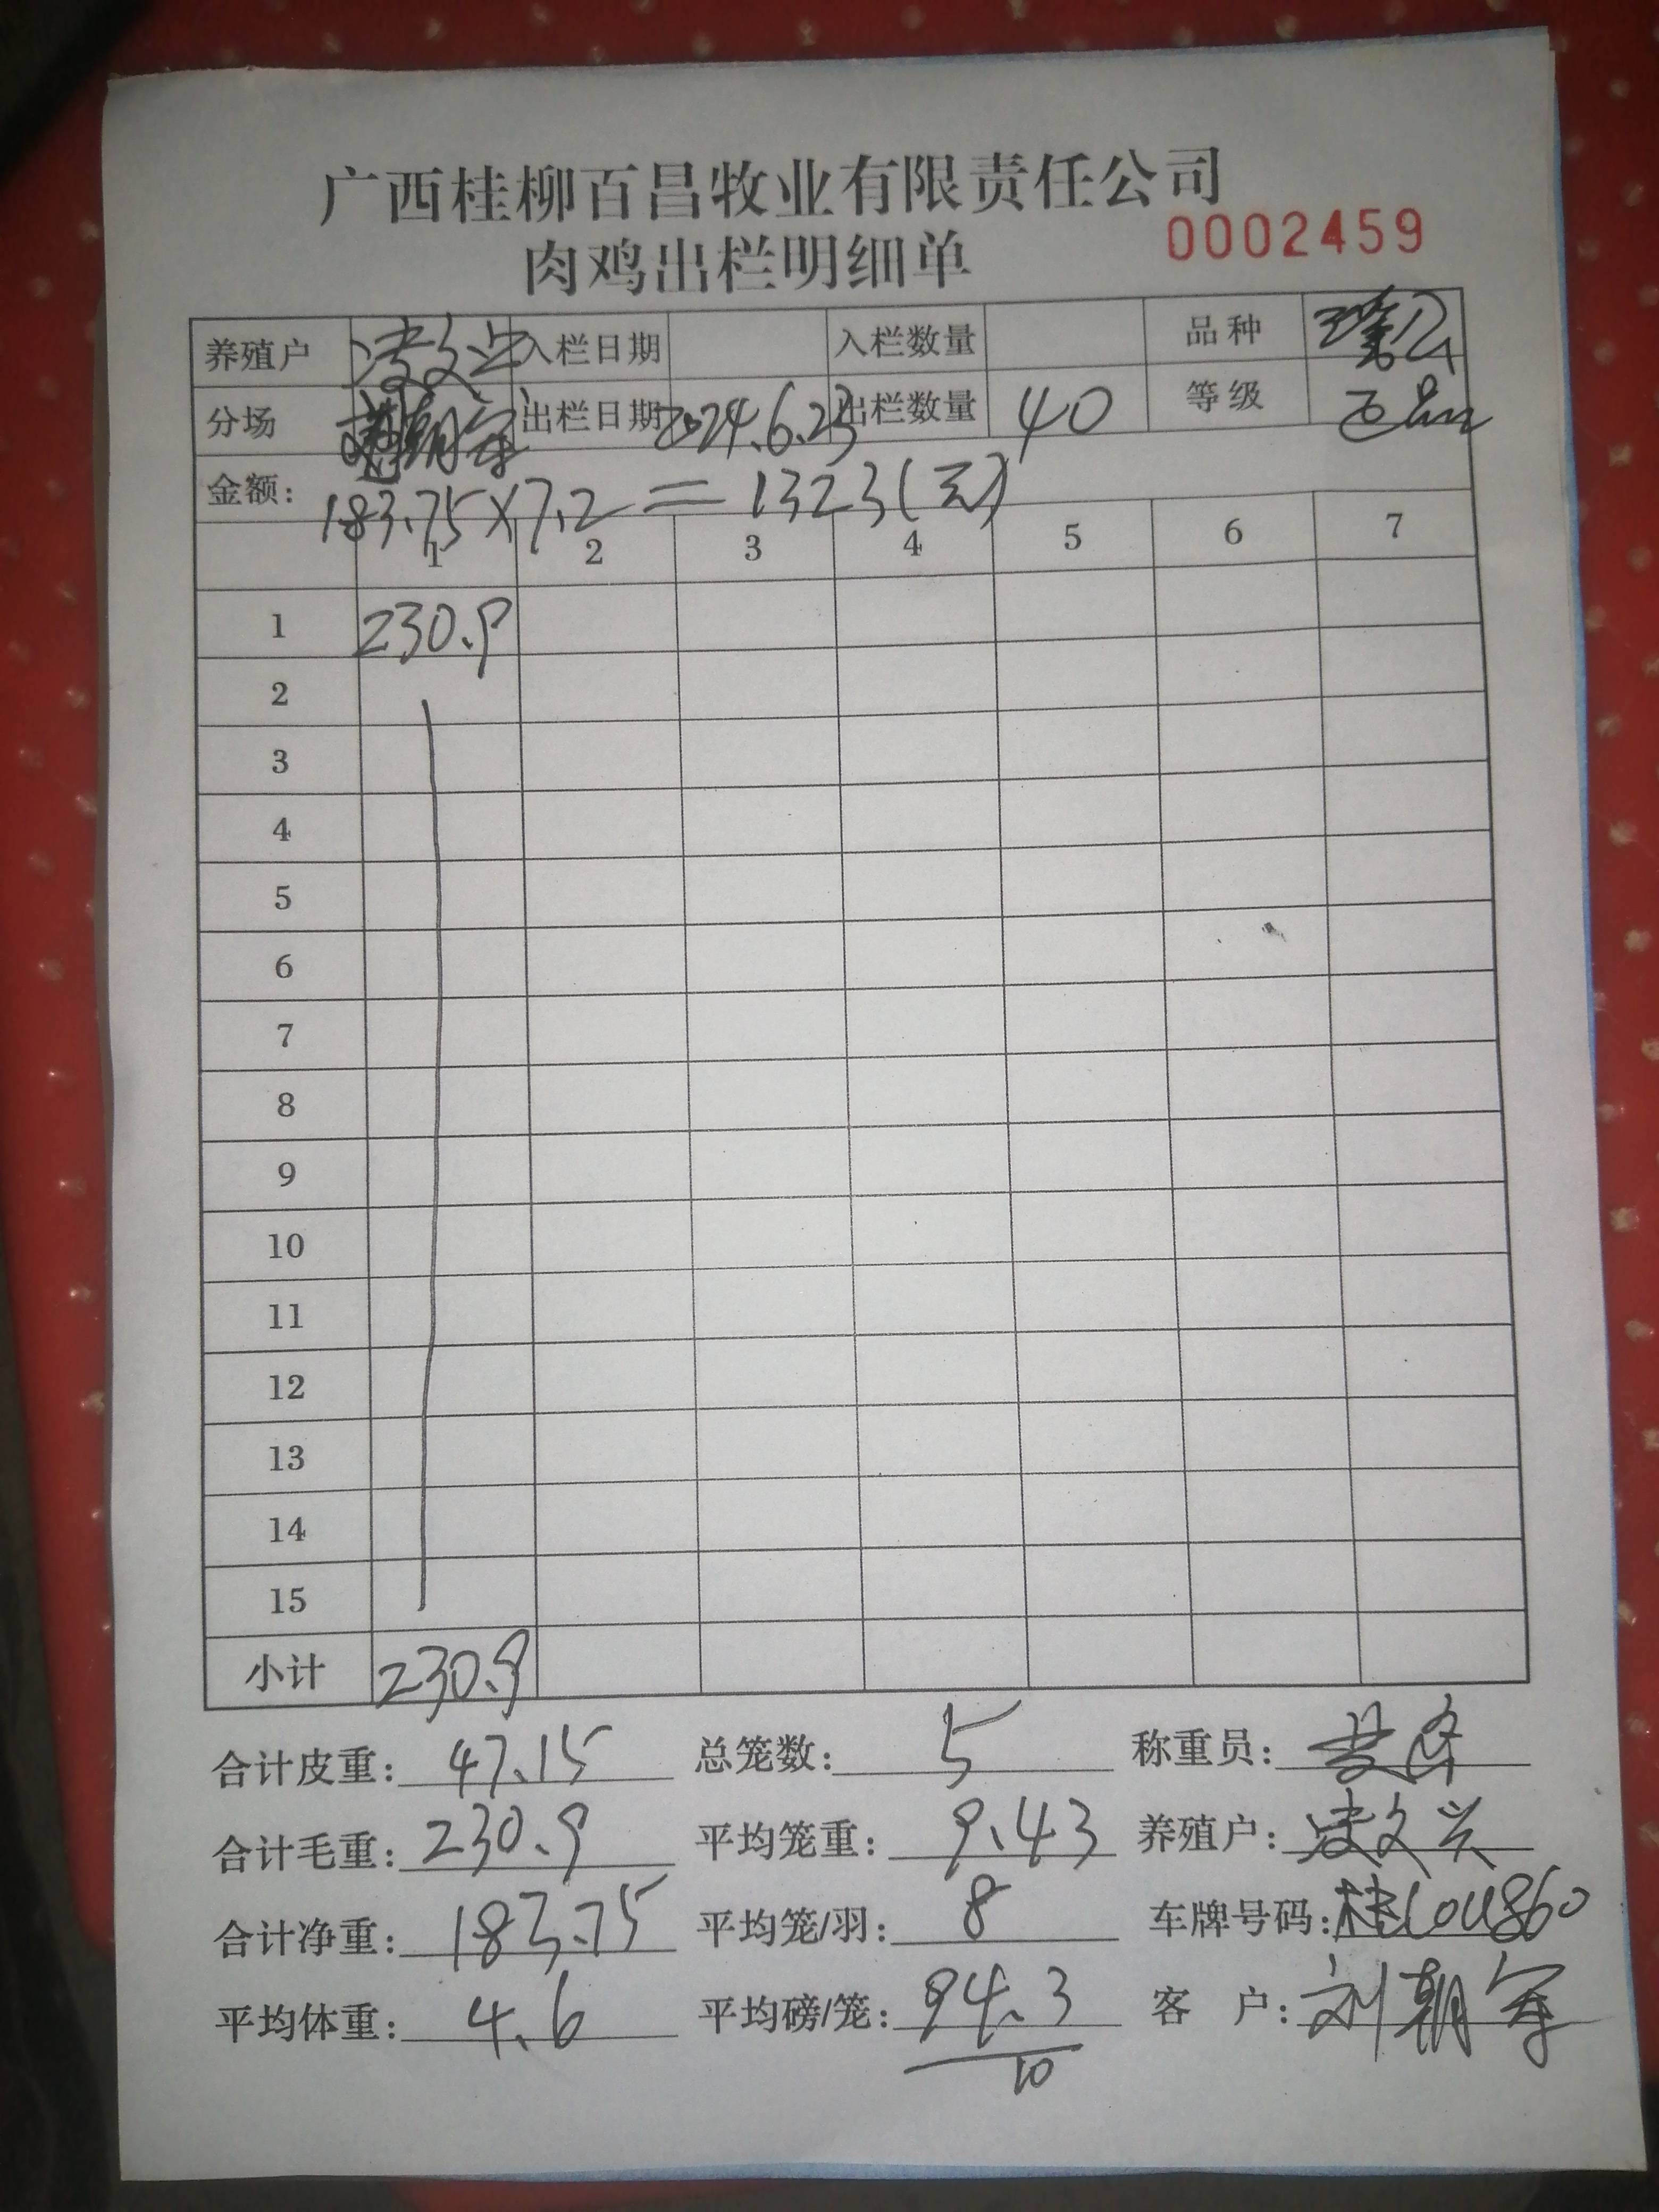 广西桂柳百昌牧业有限责任公司
肉鸡出栏明细单 0002459
养殖户 凌文兴 入栏日期 入栏数量 品种
分场 出栏日期 2024.6.23 出栏数量 40 等级
金额: 183.75×7.2=1323(元)
1 2 3 4 5 6 7
1 230.9
2
3
4
5
6
7
8
9
10
11
12
13
14
15
小计 230.9
合计皮重: 47.15 总笼数: 5 称重员:
合计毛重: 230.9 平均笼重: 9.43 养殖户: 凌文兴
合计净重: 183.75 平均笼/羽: 8 车牌号码:
平均体重: 4.6 平均磅/笼: 94.3 客 户: 刘朝军
10